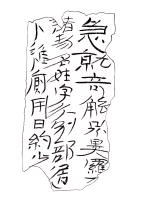 急就奇觚與衆異羅列
諸物名姓字分別部居
不雜廁用日約少